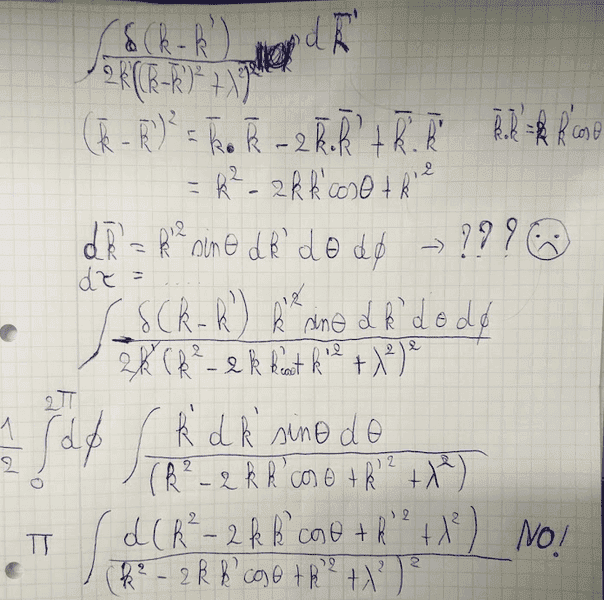 ∫ δ(k-k') / 2k'((k̄-k̄')² + λ²)² dk̄'
(k̄ - k̄')² = k̄·k̄ - 2k̄·k̄' + k̄'·k̄' k̄·k̄' = k k' cosθ
= k² - 2kk'cosθ + k'²
dk̄' = k'² sinθ dk' dθ dφ → ??? ☹
dτ = ....
∫ δ(k-k') k'² sinθ dk' dθ dφ / 2k' (k² - 2k k'cosθ + k'² + λ²)²
1/2 ∫₀^2π dφ ∫ k' dk' sinθ dθ / (k² - 2kk'cosθ + k'² + λ²)
π ∫ d(k² - 2kk'cosθ + k'² + λ²) / (k² - 2kk'cosθ + k'² + λ²)² NO!